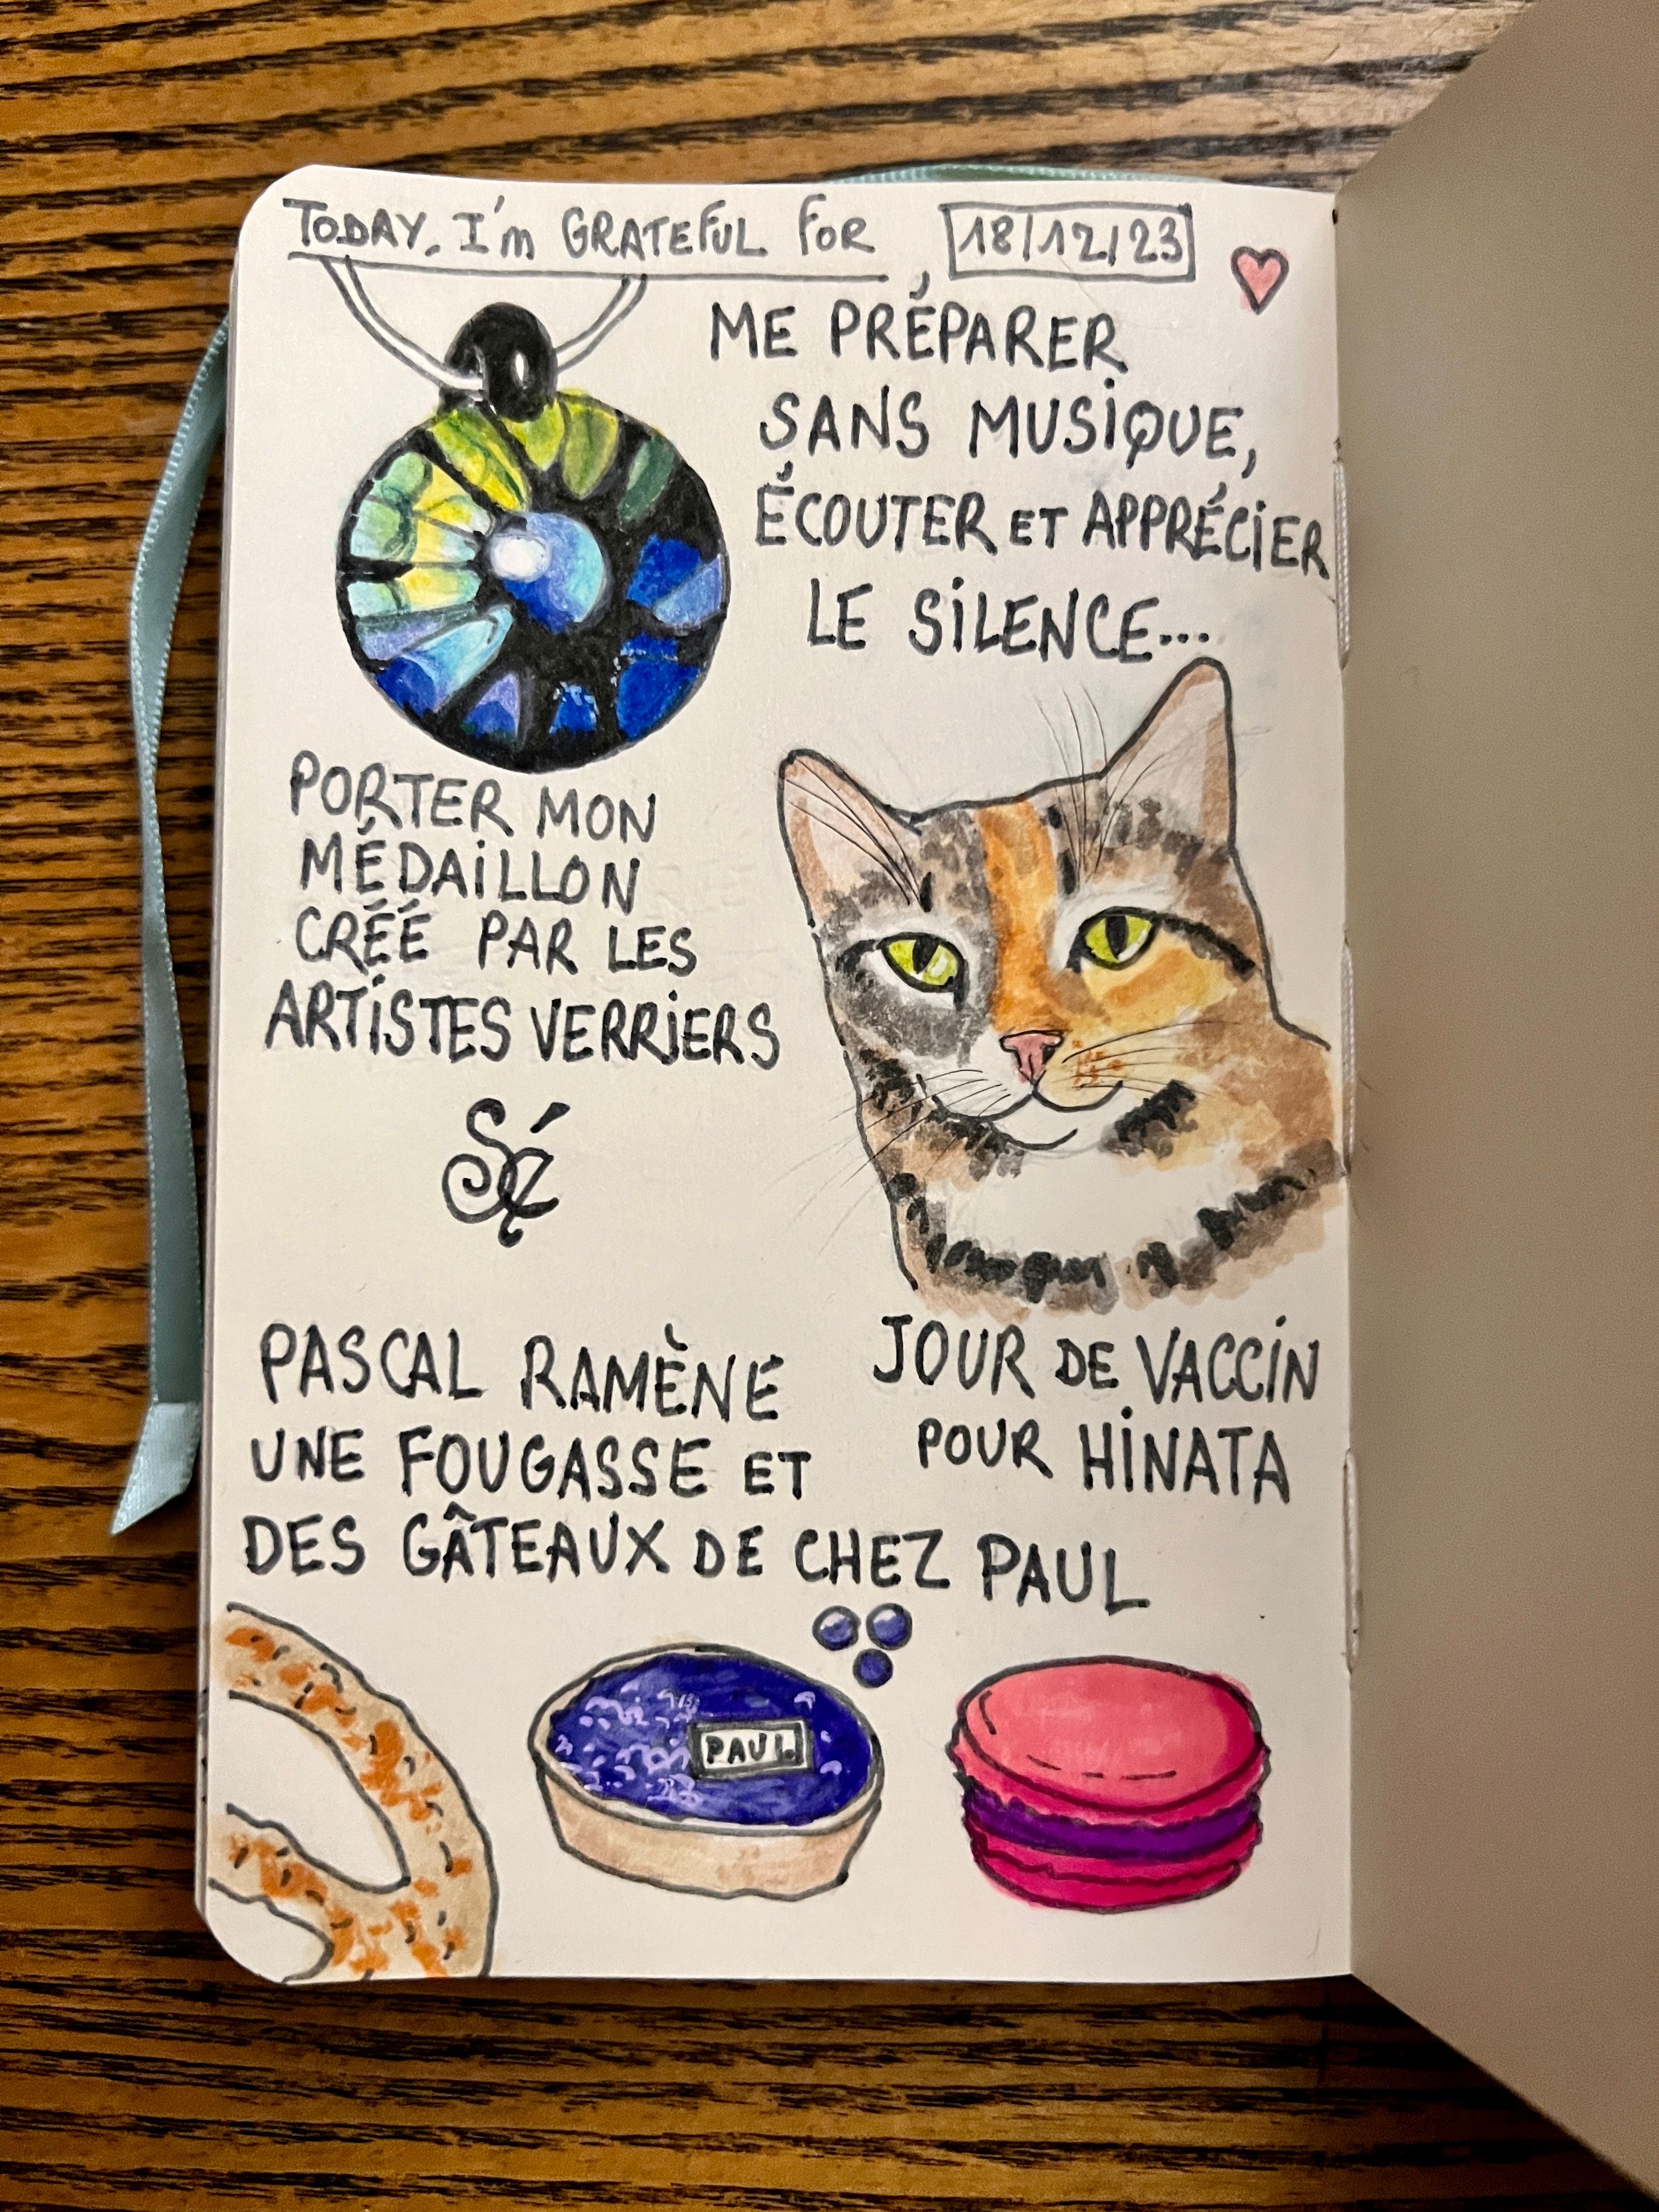 TODAY, I'm GRATEFUL FOR 18/12/23
ME PRÉPARER
SANS MUSIQUE,
ÉCOUTER ET APPRÉCIER
LE SILENCE...
PORTER MON
MÉDAILLON
CRÉÉ PAR LES
ARTISTES VERRIERS
JOUR DE VACCIN
POUR HINATA
PASCAL RAMÈNE
UNE FOUGASSE ET
DES GÂTEAUX DE CHEZ PAUL
PAUL